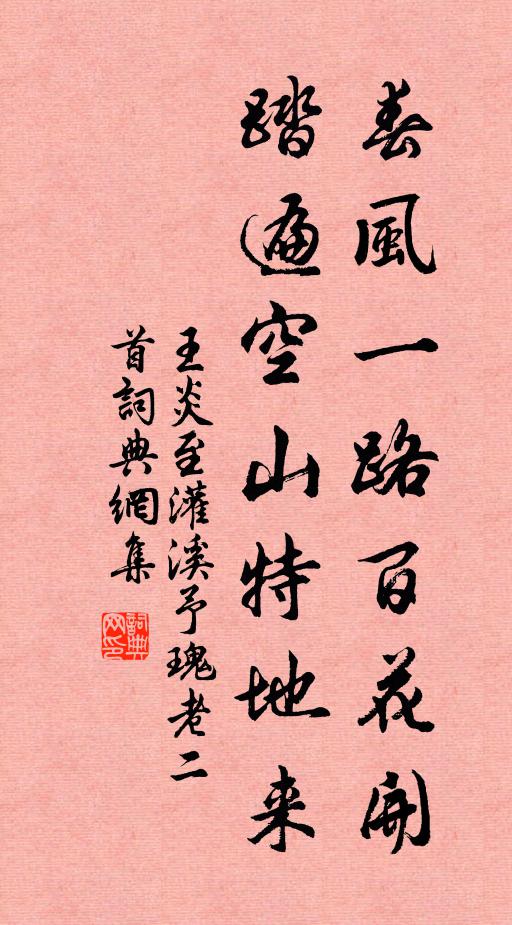 春風一路百花開
踏遍空山特地来
王炎至灌溪予瑰老二
首詞典網集
詞典网印